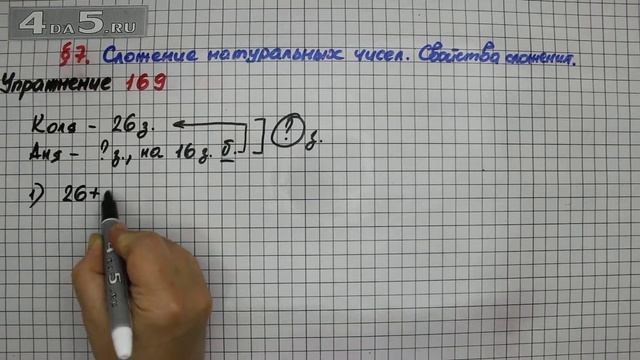 4DA5.RU
§7. Сложение натуральных чисел. Свойства сложения.
Упражнение 169
Коля - 26 з.
Аня - ? з., на 16 з. б. ? з.
1) 26+
4DA5.RU